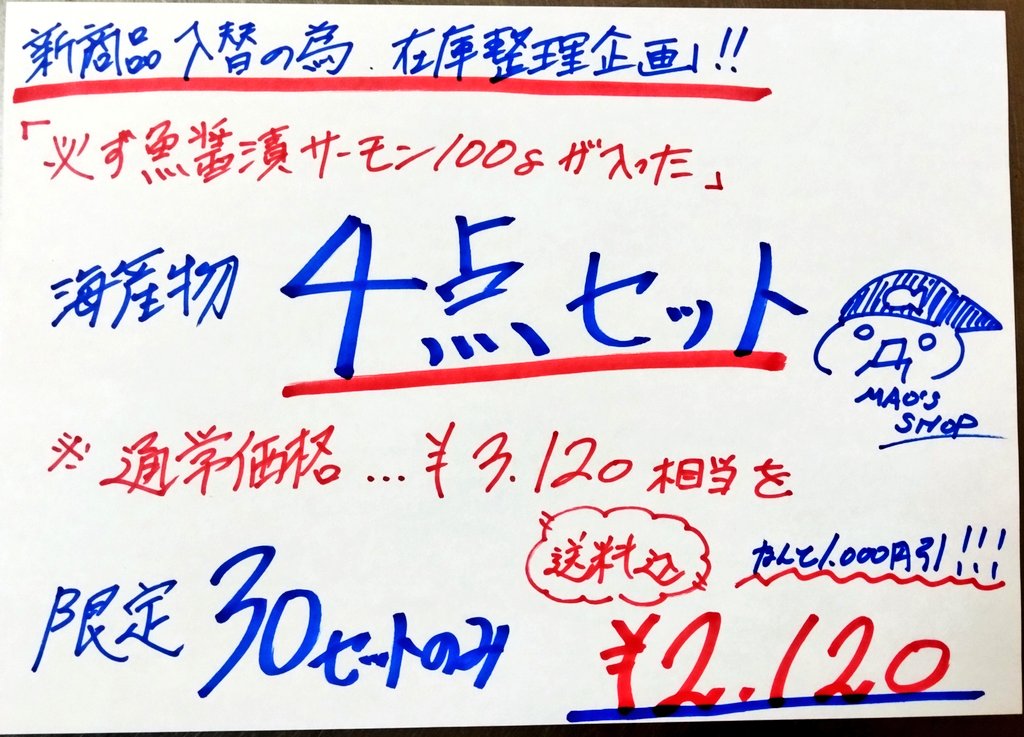 新商品入替の為、在庫整理企画!!
「必ず魚醤漬サーモン100gが入った」
海産物 4点セット
MAO'S
SHOP
※通常価格…¥3.120相当を
送料込
なんと1.000円引!!!
限定30セットのみ
¥2.120